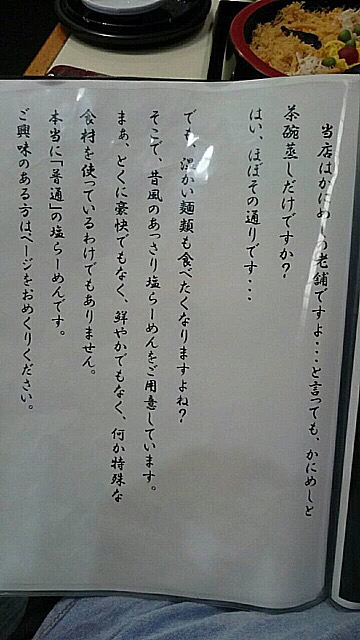 当店はかにめしの老舗ですよ・・・と言っても、かにめしと
茶碗蒸しだけですか？
はい、ほぼその通りです・・・
でも、温かい麺類も食べたくなりますよね？
そこで、昔風のあっさり塩らーめんをご用意しています。
まぁ、とくに豪快でもなく、鮮やかでもなく、何か特殊な
食材を使っているわけでもありません。
本当に「普通」の塩らーめんです。
ご興味のある方はページをおめくりください。